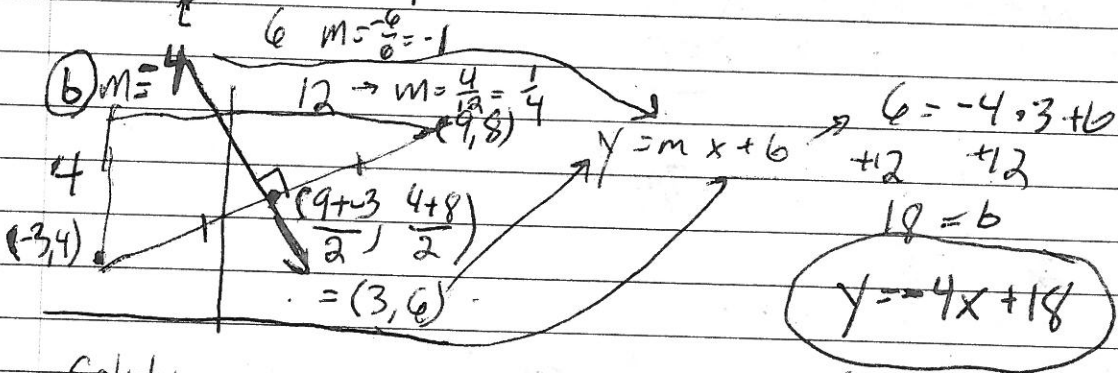 6 m = -6/6 = -1
(b) m = -4
12 → m = 4/12 = 1/4
(9,8)
4
(-3,4)
(9+-3/2, 4+8/2)
= (3,6)
y = mx + b
6 = -4·3+b
+12 +12
18 = b
y = -4x + 18